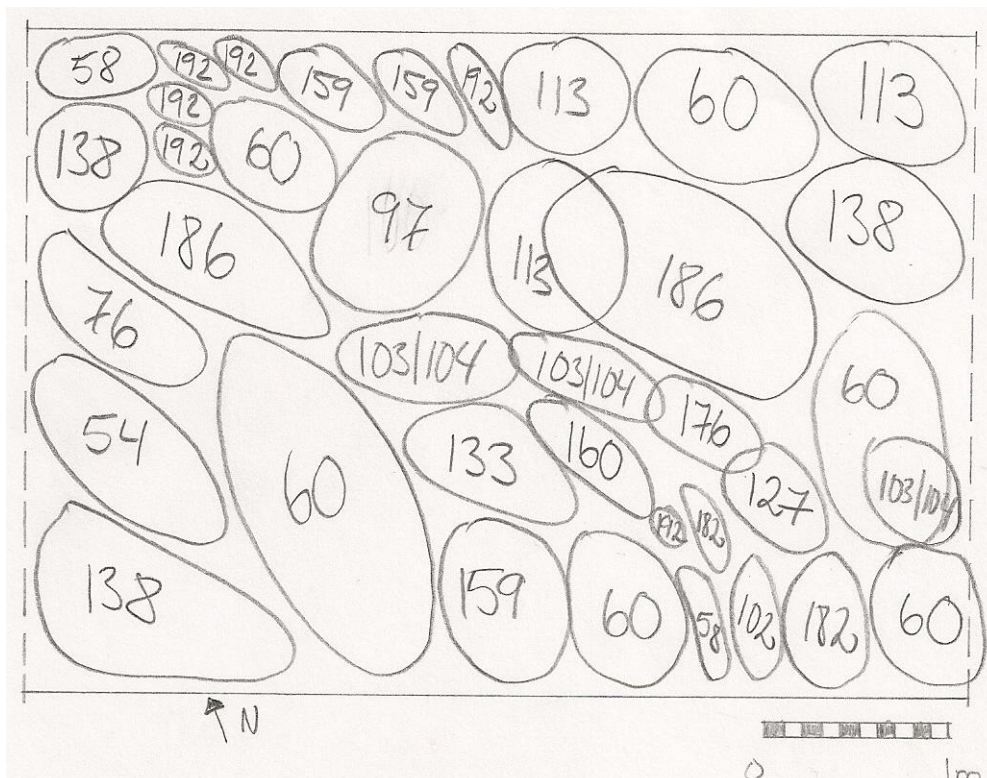 58 192 192 159 159 192 113 60 113
192
138 192 60 97 113 186 138
186
76 103/104 103/104 176 60
54 60 133 160 127 103/104
192 182
138 159 60 58 102 182 60
N
0 1m